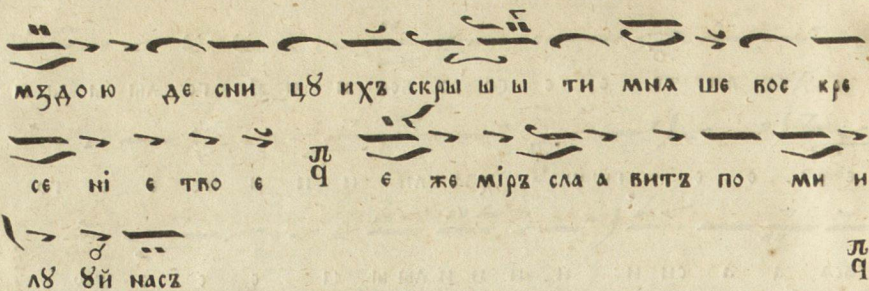 мздою де сни цꙋ ихъ скры ы ы ти мнѧ ше вос кре
се нї е тво е п ч е же мїръ сла а витъ по ми и
лꙋ ꙋй насъ п ч